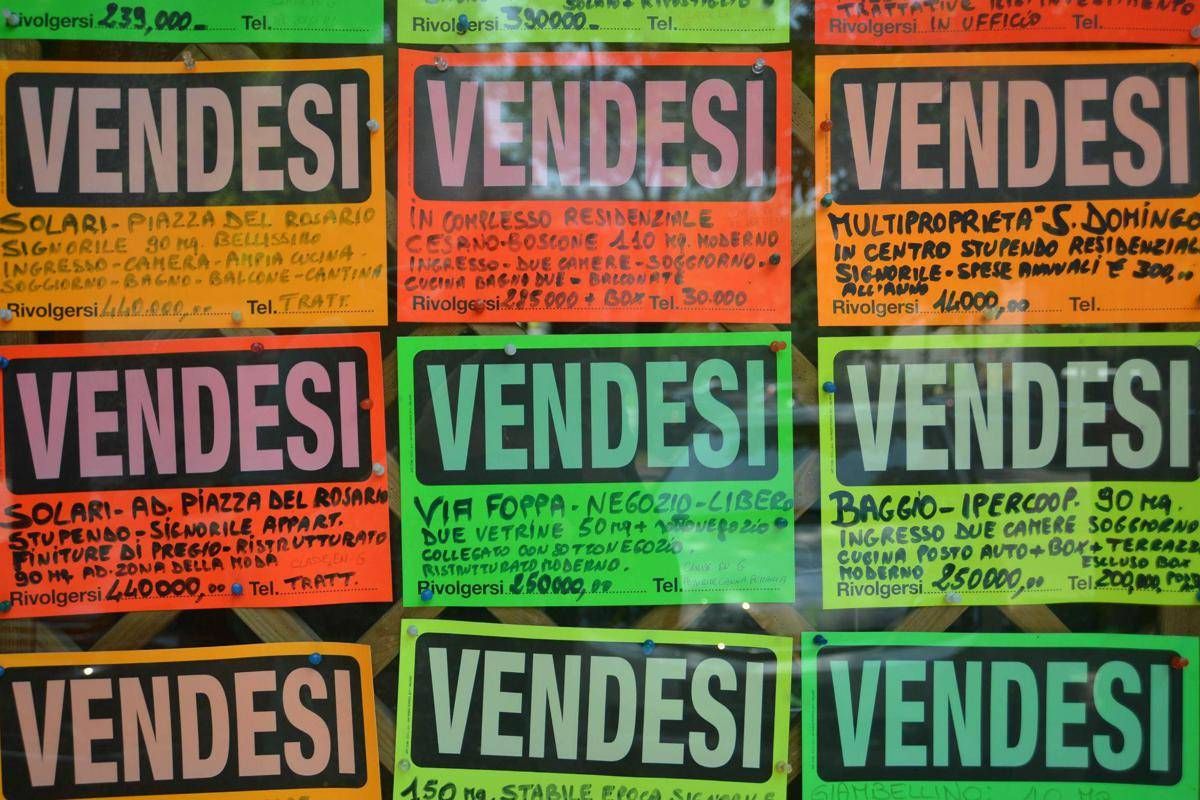 Rivolgersi 239,000=
Tel.
Rivolgersi 390000=
Tel.
Rivolgersi IN UFFICIO
VENDESI
SOLARI - PIAZZA DEL ROSARIO
SIGNORILE 90 MQ. BELLISSIMO
INGRESSO - CAMERA - AMPIA CUCINA -
SOGGIORNO - BAGNO - BALCONE - CANTINA
Rivolgersi 440.000,00 Tel. TRATT.
VENDESI
IN COMPLESSO RESIDENZIALE
CESANO-BOSCONE 110 MQ. MODERNO
INGRESSO - DUE CAMERE - SOGGIORNO.
CUCINA BAGNI DUE - BALCONATE
Rivolgersi 285000 + BOX Tel. 30.000
VENDESI
MULTIPROPRIETA' S. DOMINGO
IN CENTRO STUPENDO RESIDENZIAE
SIGNORILE - SPESE ANNUALI € 300,00
ALL'ANNO
Rivolgersi 14000,00 Tel.
VENDESI
SOLARI - AD. PIAZZA DEL ROSARIO
STUPENDO - SIGNORILE APPART.
FINITURE DI PREGIO - RISTRUTTURATO
90 MQ AD. ZONA DELLA MODA CLASSE EN G
Rivolgersi 440000,00 Tel. TRATT.
VENDESI
VIA FOPPA - NEGOZIO - LIBERO
DUE VETRINE 50 MQ + SOTTONEGOZIO
COLLEGATO CON SOTTONEGOZIO.
RISTRUTTURATO MODERNO.
Rivolgersi 260000,00 Tel.
VENDESI
BAGGIO - IPERCOOP. 90 MQ.
INGRESSO DUE CAMERE SOGGIORNO
CUCINA POSTO AUTO + BOX + TERRAZZ
MODERNO ESCLUSO BOX
Rivolgersi 250000,00 Tel. 200,000
VENDESI
VENDESI
150 MQ. STABILE EPOCA SIGNORILE
VENDESI
GIAMBELLINO: